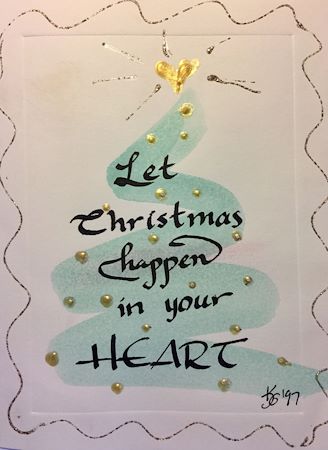 Let
Christmas
happen
in your
HEART
'97